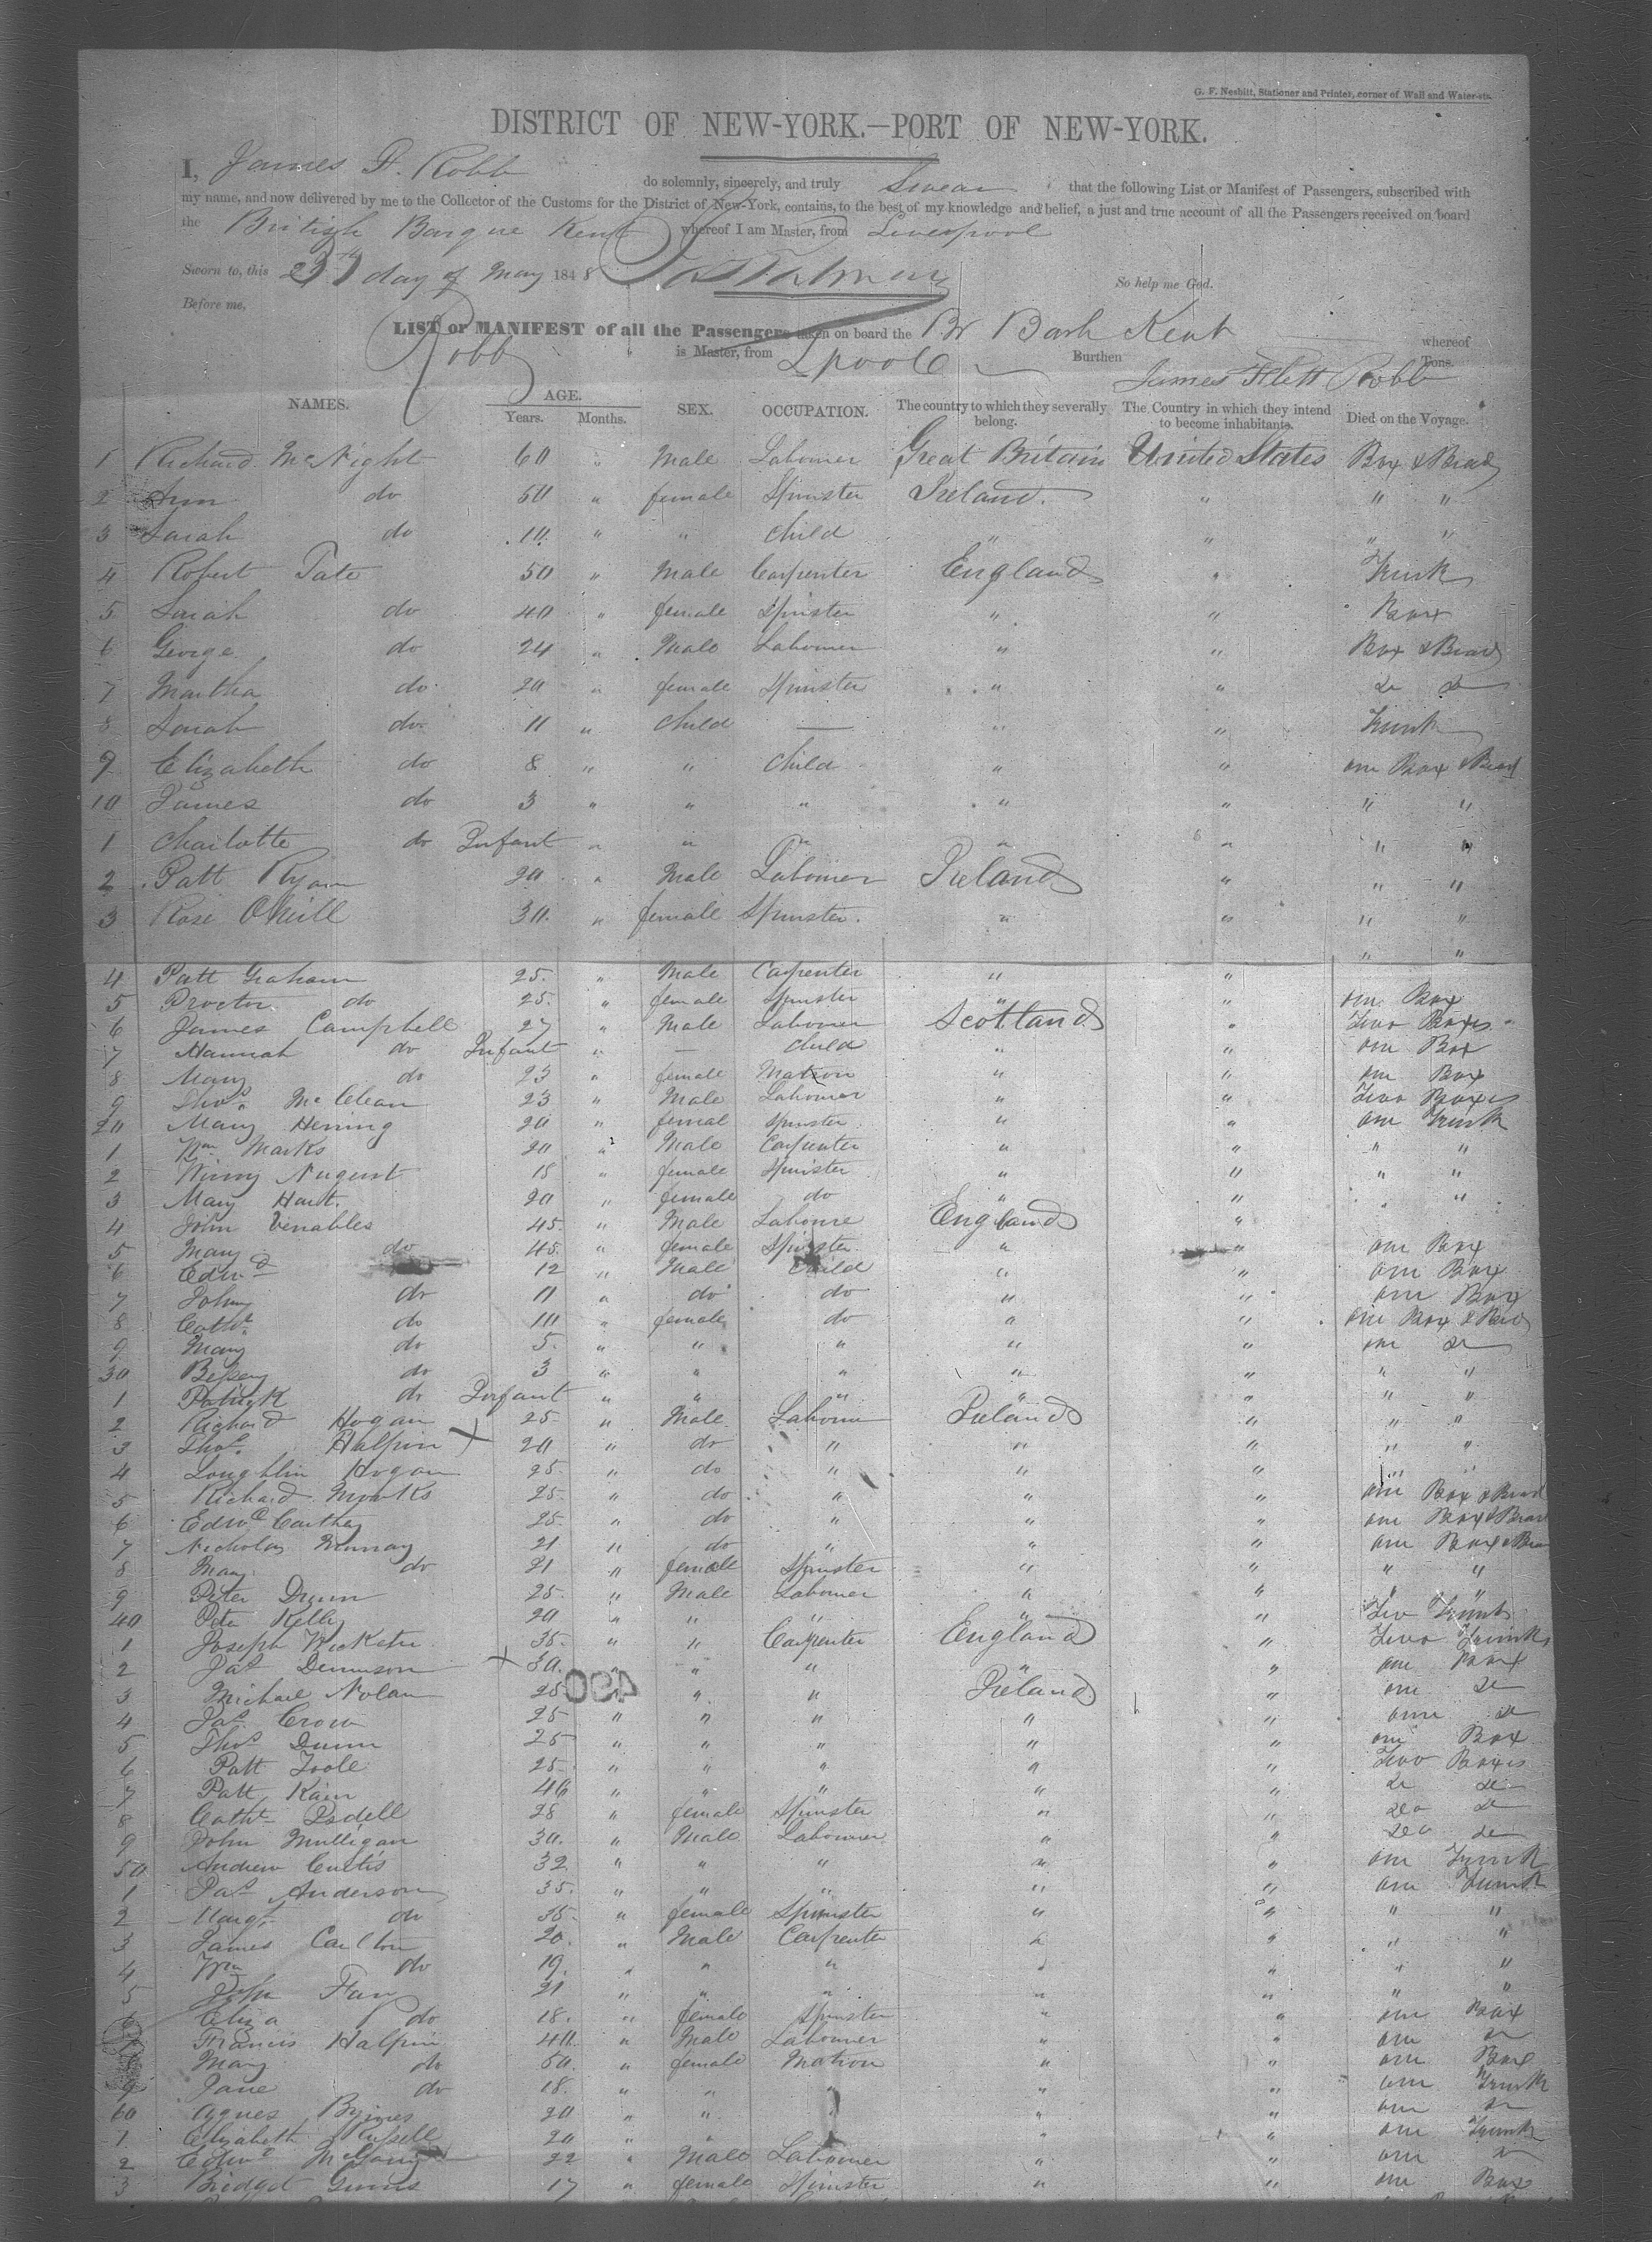 G. F. Nesbitt, Stationer and Printer, corner of Wall and Water-sts.
DISTRICT OF NEW-YORK.—PORT OF NEW-YORK.
I, James F. Robb do solemnly, sincerely, and truly Swear that the following List or Manifest of Passengers, subscribed with
my name, and now delivered by me to the Collector of the Customs for the District of New-York, contains, to the best of my knowledge and belief, a just and true account of all the Passengers received on board
the British Barque Kent whereof I am Master, from Liverpool
Sworn to, this day of May 1848 So help me God.
Before me,
LIST or MANIFEST of all the Passengers taken on board the Br Bark Kent whereof
Robb is Master, from Lpool Burthen Tons.
James Flett Robb
NAMES. AGE. Years. Months. SEX. OCCUPATION. The country to which they severally belong. The Country in which they intend to become inhabitants. Died on the Voyage.
1 Richard McNight 60 " Male Labourer Great Britain United States Box & Bread
2 Ann do 50 " female Spinster Ireland. " " "
3 Sarah do 10 " " Child " " " "
4 Robert Tate 50 " Male Carpenter England " Trunk
5 Sarah do 40 " female Spinster " " Box
6 George do 24 " Male Labourer " " Box & Bread
7 Martha do 20 " female Spinster " "
8 Sarah do 11 " Child — " " Trunk
9 Elizabeth do 8 " " Child " " one Box & Bread
10 James do 3 " " " " " " "
1 Charlotte do Infant " " " " " " "
2 Patt Ryan 20 " Male Labourer Ireland " " "
3 Rose ONeill 30 " female Spinster. " " " "
" "
4 Patt Graham 25 " Male Carpenter " "
5 Proctor do 25 " female Spinster " " one Box
6 James Campbell 27 " Male Labourer Scotland " Two Boxes
7 Hannah do Infant " — Child " " one Box
8 Mary do 23 " female Matron " " one Box
9 Thos. McClean 23 " Male Labourer " " Two Boxes
20 Mary Herring 20 " femal Spinster " " one Trunk
1 Wm Marks 20 " Male Carpenter " " " "
2 Winny Nugent 18 " female Spinster " " " "
3 Mary Hart. 20 " female do " " "
4 John Venables 45 " Male Laboure England "
5 Mary do 45 " female Spinster " " one Box
6 Edwd 12 " Male Child " " one Box
7 John do 11 " do do " " one Box
8 Cathe. do 10 " female do " " one Box & Bread
9 Mary do 5 " " " " " one
30 Bessey do 3 " " " " " " "
1 Patrick do Infant " " " " " " "
2 Richard Hogan 25 " Male Labour Ireland " " "
3 Thos. Halpin X 20 " do " " " " "
4 Loughlin Hogan 25 " do " " " " "
5 Richard Monks 25 " do " " " one Box & Bread
6 Edwd Carthy 25 " do " " " one Box & Bread
7 Nicholas Murray 21 " do " " " one Box &
8 Mary do 21 " female Spinster " " " "
9 Peter Drumn 25 " Male Labourer " " " "
40 Peter Kelly 20 " " " " " Trunk
1 Joseph 35 " " Carpenter England " Two Trunks
2 Jas Dennison X 30 " " " " " one Box
3 Michael Nolan 25 " " " Ireland " one
4 Jas. Crow 25 " " " " " one
5 Thos Dunn 25 " " " " " one Box
6 Patt Toole 25 " " " " " Two Boxes
7 Patt Kain 46 " " " " "
8 Cathe 28 " female Spinster " "
9 John Mulligan 30 " Male Labourer " "
50 Andrew Curtis 32 " " " " " one Trunk
1 Jas Anderson 35 " " " " " one Trunk
2 Margt do 35 " female Spinster " " " "
3 James Carlton 20 " Male Carpenter " " " "
4 Wm do 19 " " " " " " "
5 John 21 " " " " " " "
6 Eliza do 18 " female Spinster " " one Box
7 Francis Halpin 40 " Male Labourer " " one
8 Mary do 50 " female Matron " " one Box
9 Jane do 18 " " " " " one Trunk
60 Agnes Byrnes 20 " " " " " one
1 Elizabeth Russell 20 " " " " " one Trunk
2 Edwd 22 " Male Labourer " " one
3 Bridget 17 " female Spinster " " one Box